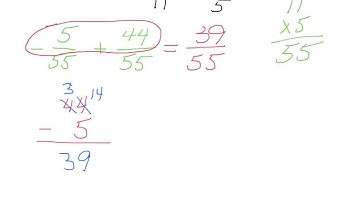 11 5 11
- 5/55 + 44/55 = 39/55
×5
55
3 14
44
- 5
39